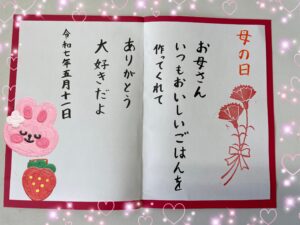 母の日
お母さん
いつもおいしいごはんを
作ってくれて
ありがとう
大好きだよ
令和七年五月十一日